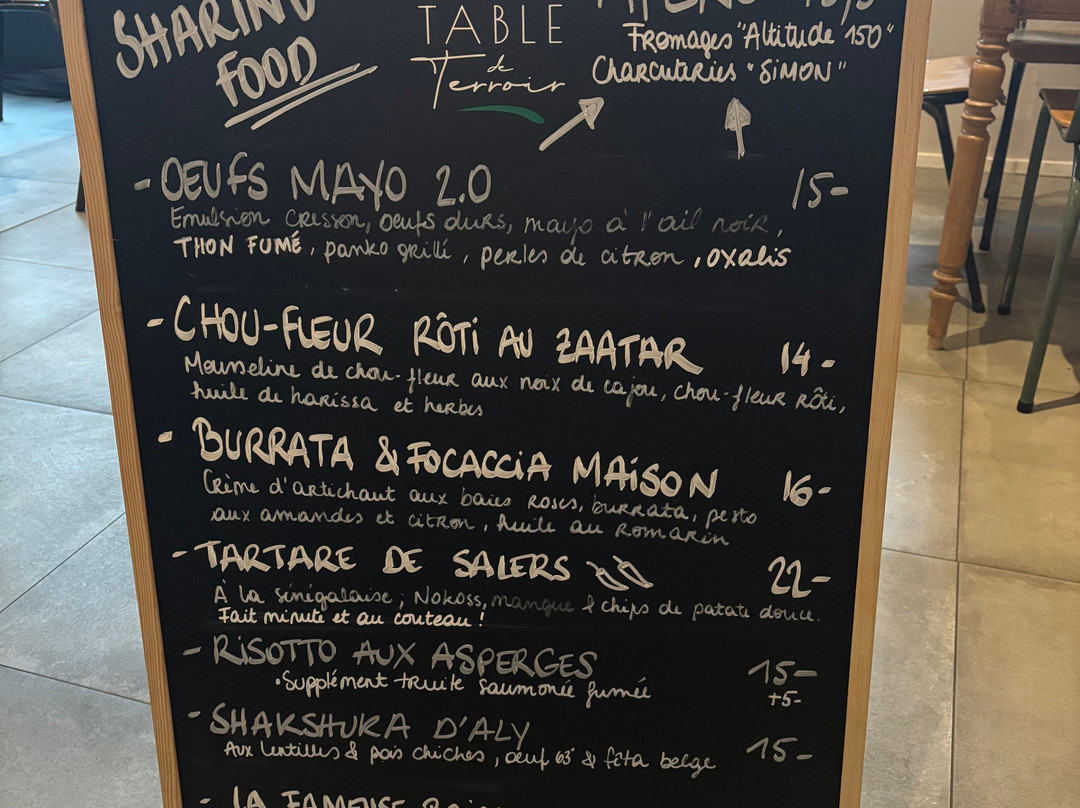 SHARING
FOOD
TABLE
de
Terroir
Fromages "Altitude 150"
Charcuteries "SIMON"
- OEUFS MAYO 2.0 15-
Emulsion cresson, oeufs durs, mayo à l'ail noir,
THON FUMÉ, panko grillé, perles de citron, oxalis
- CHOU-FLEUR RÔTI AU ZAATAR 14-
Mousseline de chou-fleur aux noix de cajou, chou-fleur rôti,
huile de harissa et herbes
- BURRATA & FOCACCIA MAISON 16-
Crème d'artichaut aux baies roses, burrata, pesto
aux amandes et citron, huile au romarin
- TARTARE DE SALERS 22-
À la sénégalaise ; Nokoss, mangue & chips de patate douce.
Fait minute et au couteau !
- RISOTTO AUX ASPERGES 15-
• Supplément truite saumonée fumée +5-
- SHAKSHUKA D'ALY 15-
Aux lentilles & pois chiches, oeuf 63° & féta belge
- LA FAMEUSE